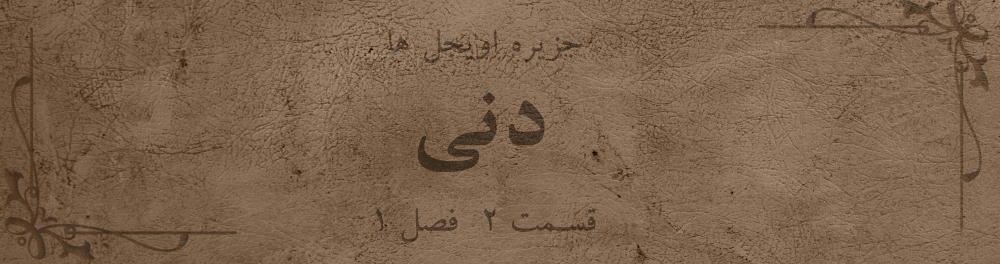 جزیره اویجل ها
دنی
قسمت ۲ فصل ۱